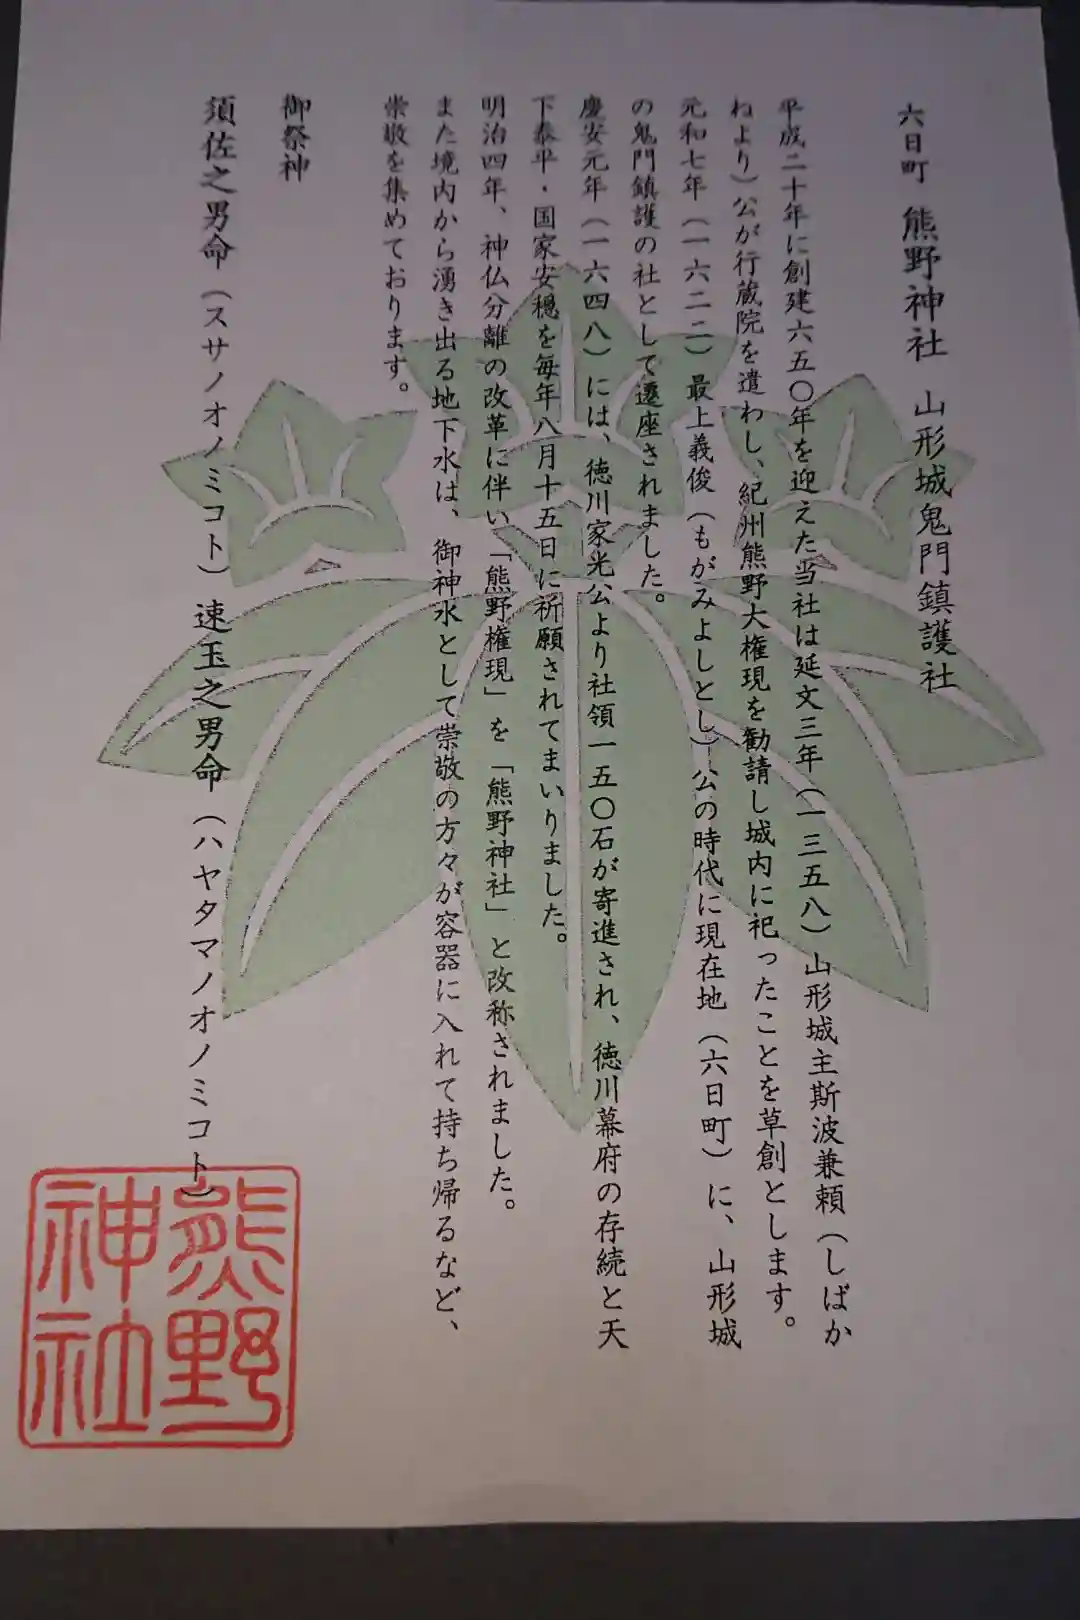 六日町 熊野神社 山形城鬼門鎮護社
平成二十年に創建六五〇年を迎えた当社は延文三年(一三五八)山形城主斯波兼頼(しばか
ねより)公が行蔵院を遣わし、紀州熊野大権現を勧請し城内に祀ったことを草創とします。
元和七年(一六二二)最上義俊(もがみよしとし)公の時代に現在地(六日町)に、山形城
の鬼門鎮護の社として遷座されました。
慶安元年(一六四八)には、徳川家光公より社領一五〇石が寄進され、徳川幕府の存続と天
下泰平・国家安穏を毎年八月十五日に祈願されてまいりました。
明治四年、神仏分離の改革に伴い「熊野権現」を「熊野神社」と改称されました。
また境内から湧き出る地下水は、御神水として崇敬の方々が容器に入れて持ち帰るなど、
崇敬を集めております。
御祭神
須佐之男命(スサノオノミコト)速玉之男命(ハヤタマノオノミコト)
熊野
神社